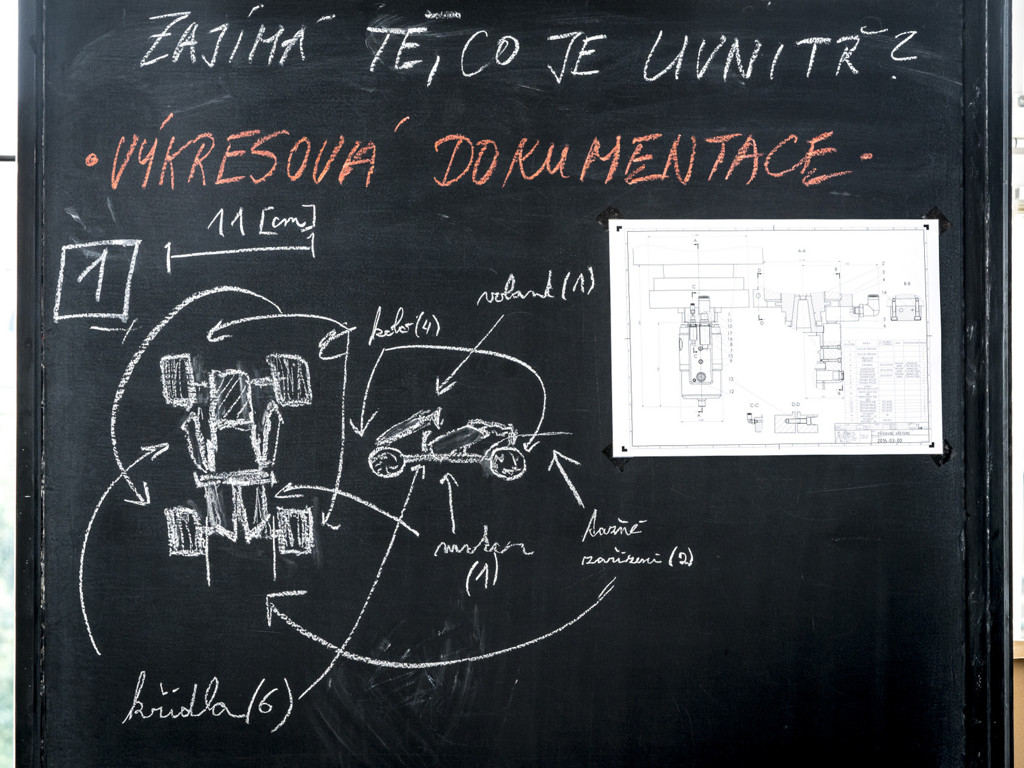 ZAJÍMÁ TĚ, CO JE UVNITŘ?
• VÝKRESOVÁ DOKUMENTACE •
11 [cm]
1
volant (1)
kolo (4)
motor
(1)
tažné
zařízení (2)
křídla (6)
A-A
B-B
C-C
D-D